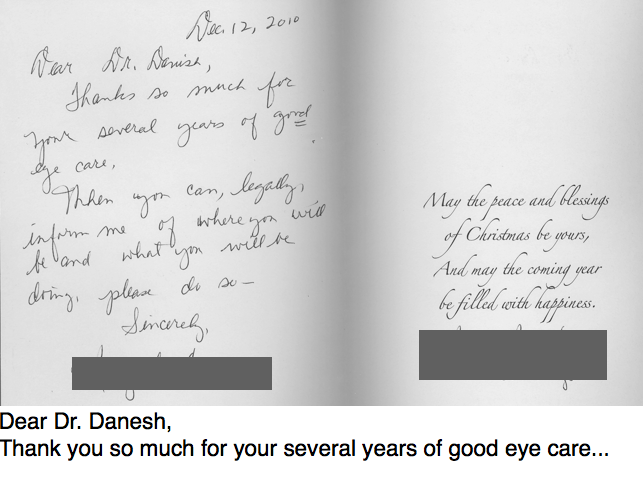 Dec. 12, 2010
Dear Dr. Danish,
Thanks so much for
your several years of good
eye care.
When you can, legally,
inform me of where you will
be and what you will be
doing, please do so—
Sincerely,
May the peace and blessings
of Christmas be yours,
And may the coming year
be filled with happiness.
Dear Dr. Danesh,
Thank you so much for your several years of good eye care...